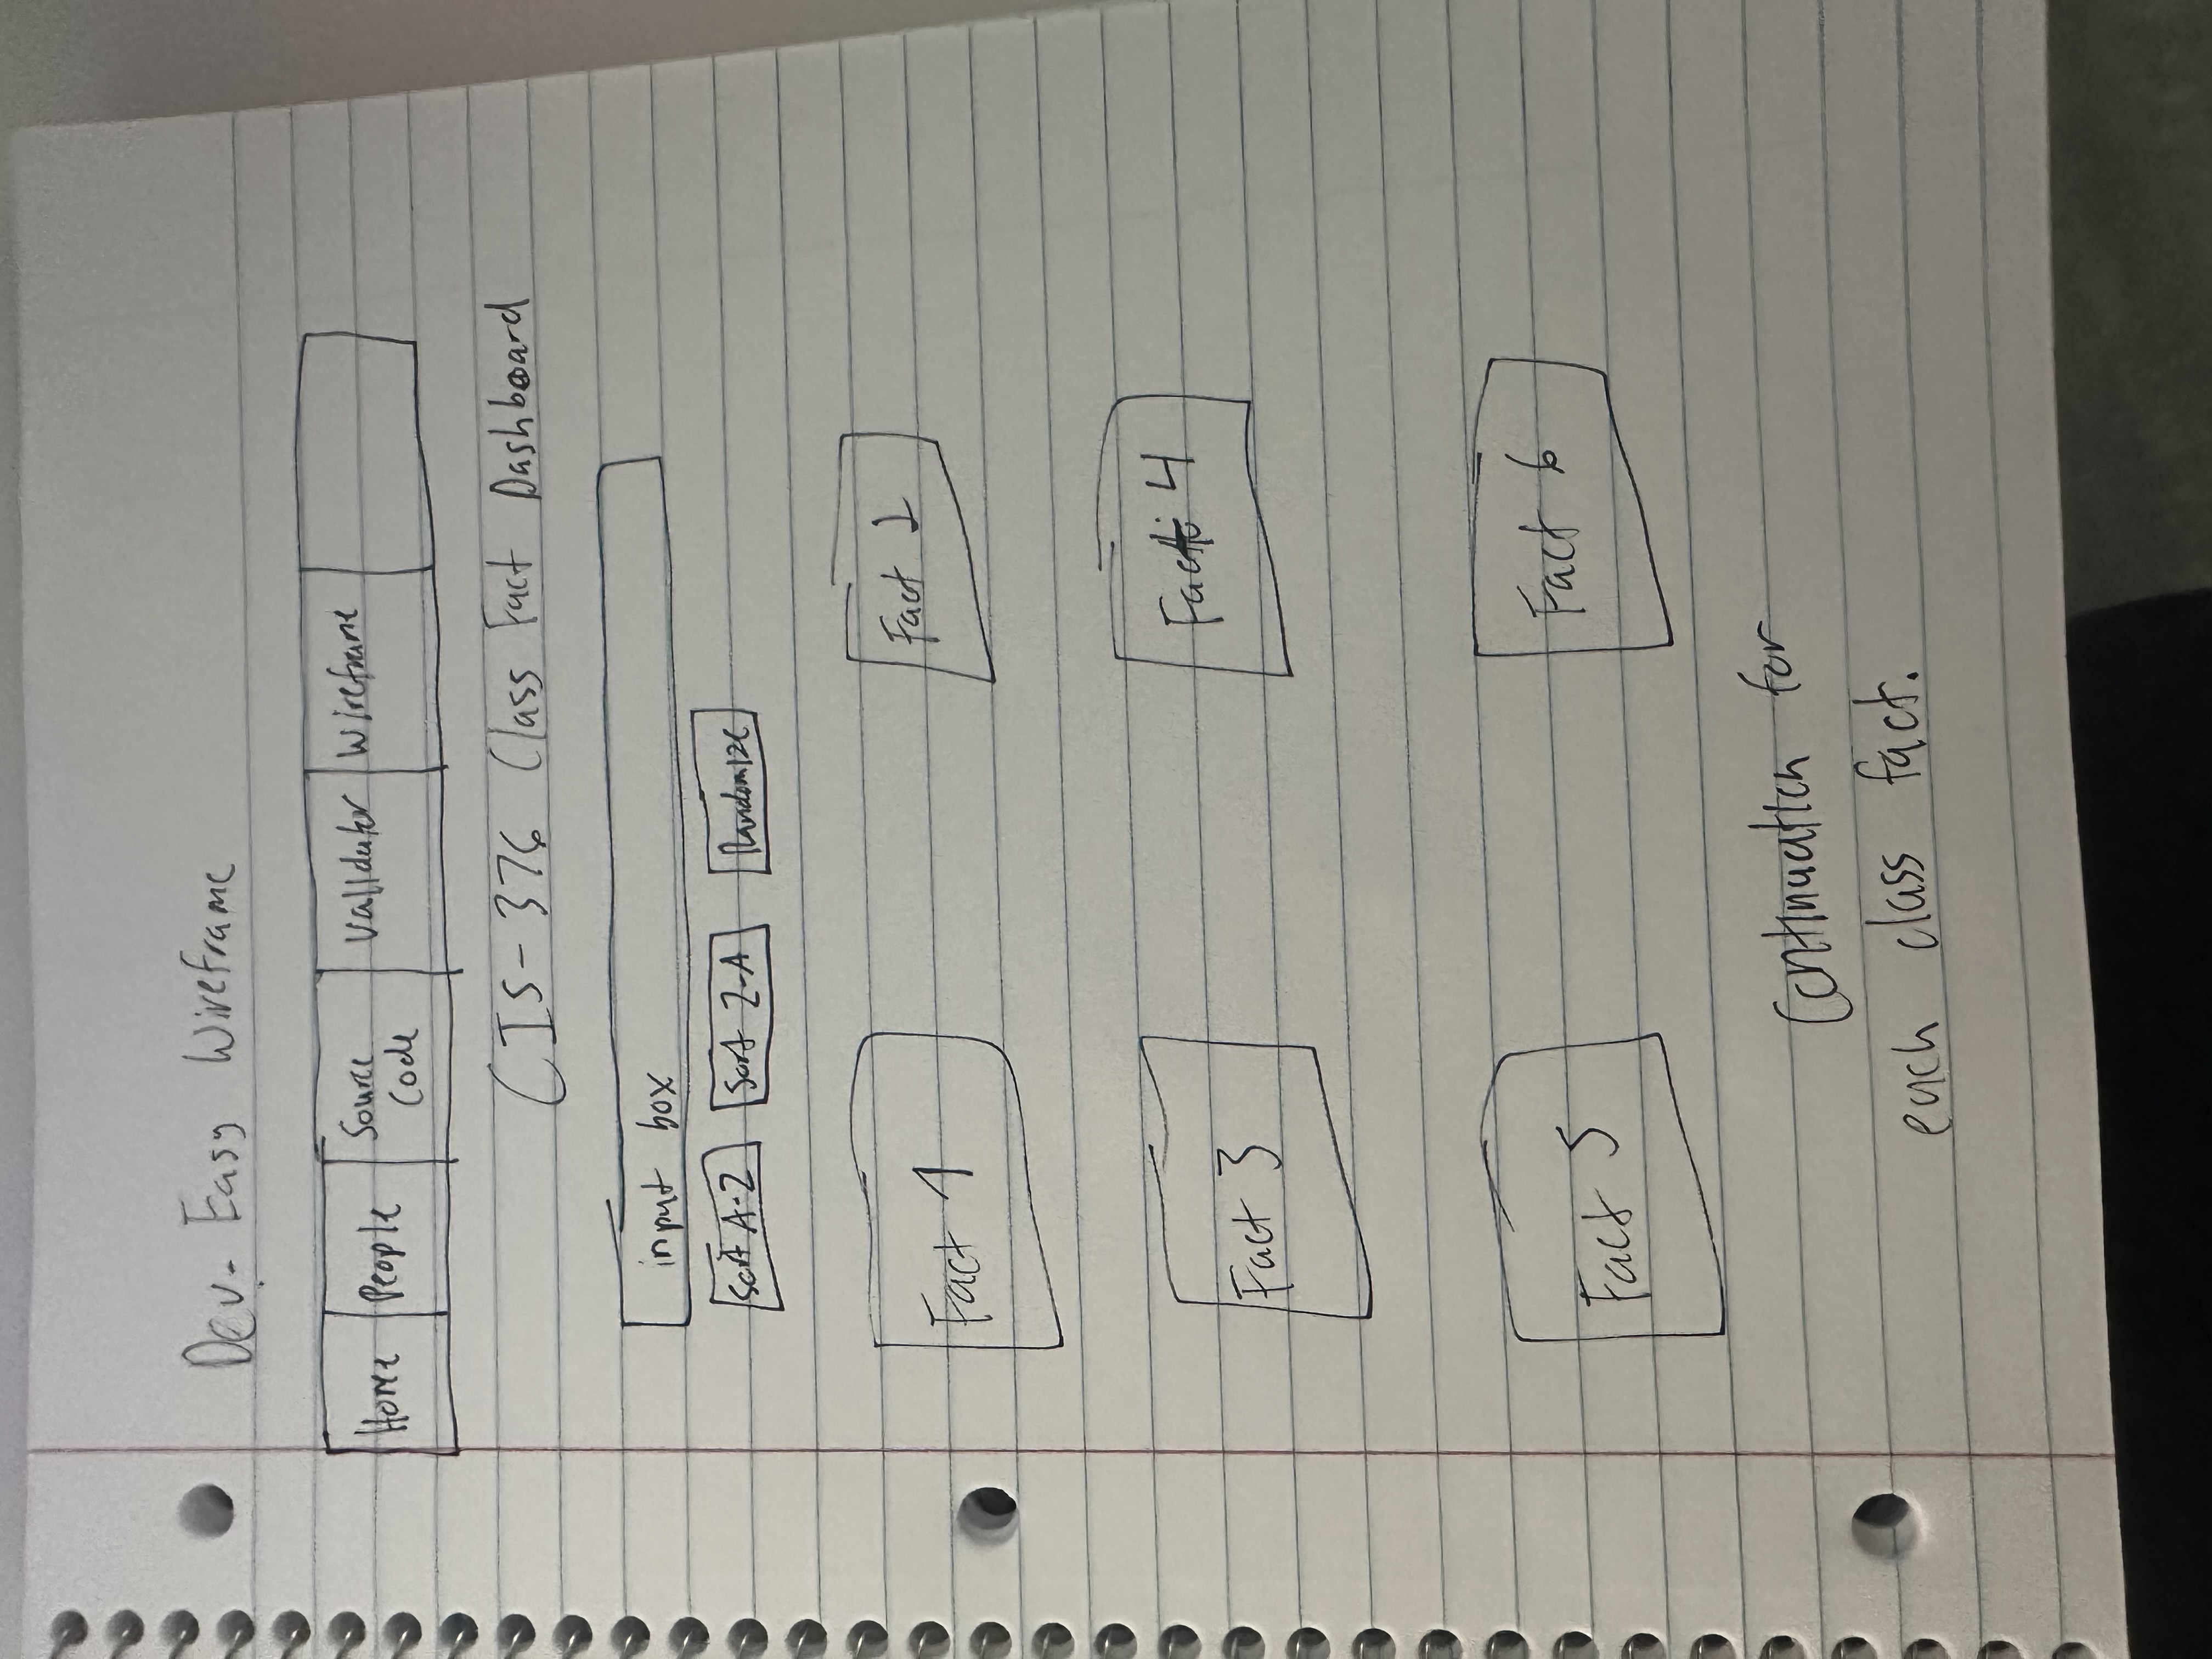 Dev. Easy Wireframe
Home People Source Code Validator Wireframe
CIS-376 Class Fact Dashboard
input box
Sort A-Z Sort Z-A Randomize
Fact 1 Fact 2
Fact 3 Fact 4
Fact 5 Fact 6
Continuation for
each class fact.